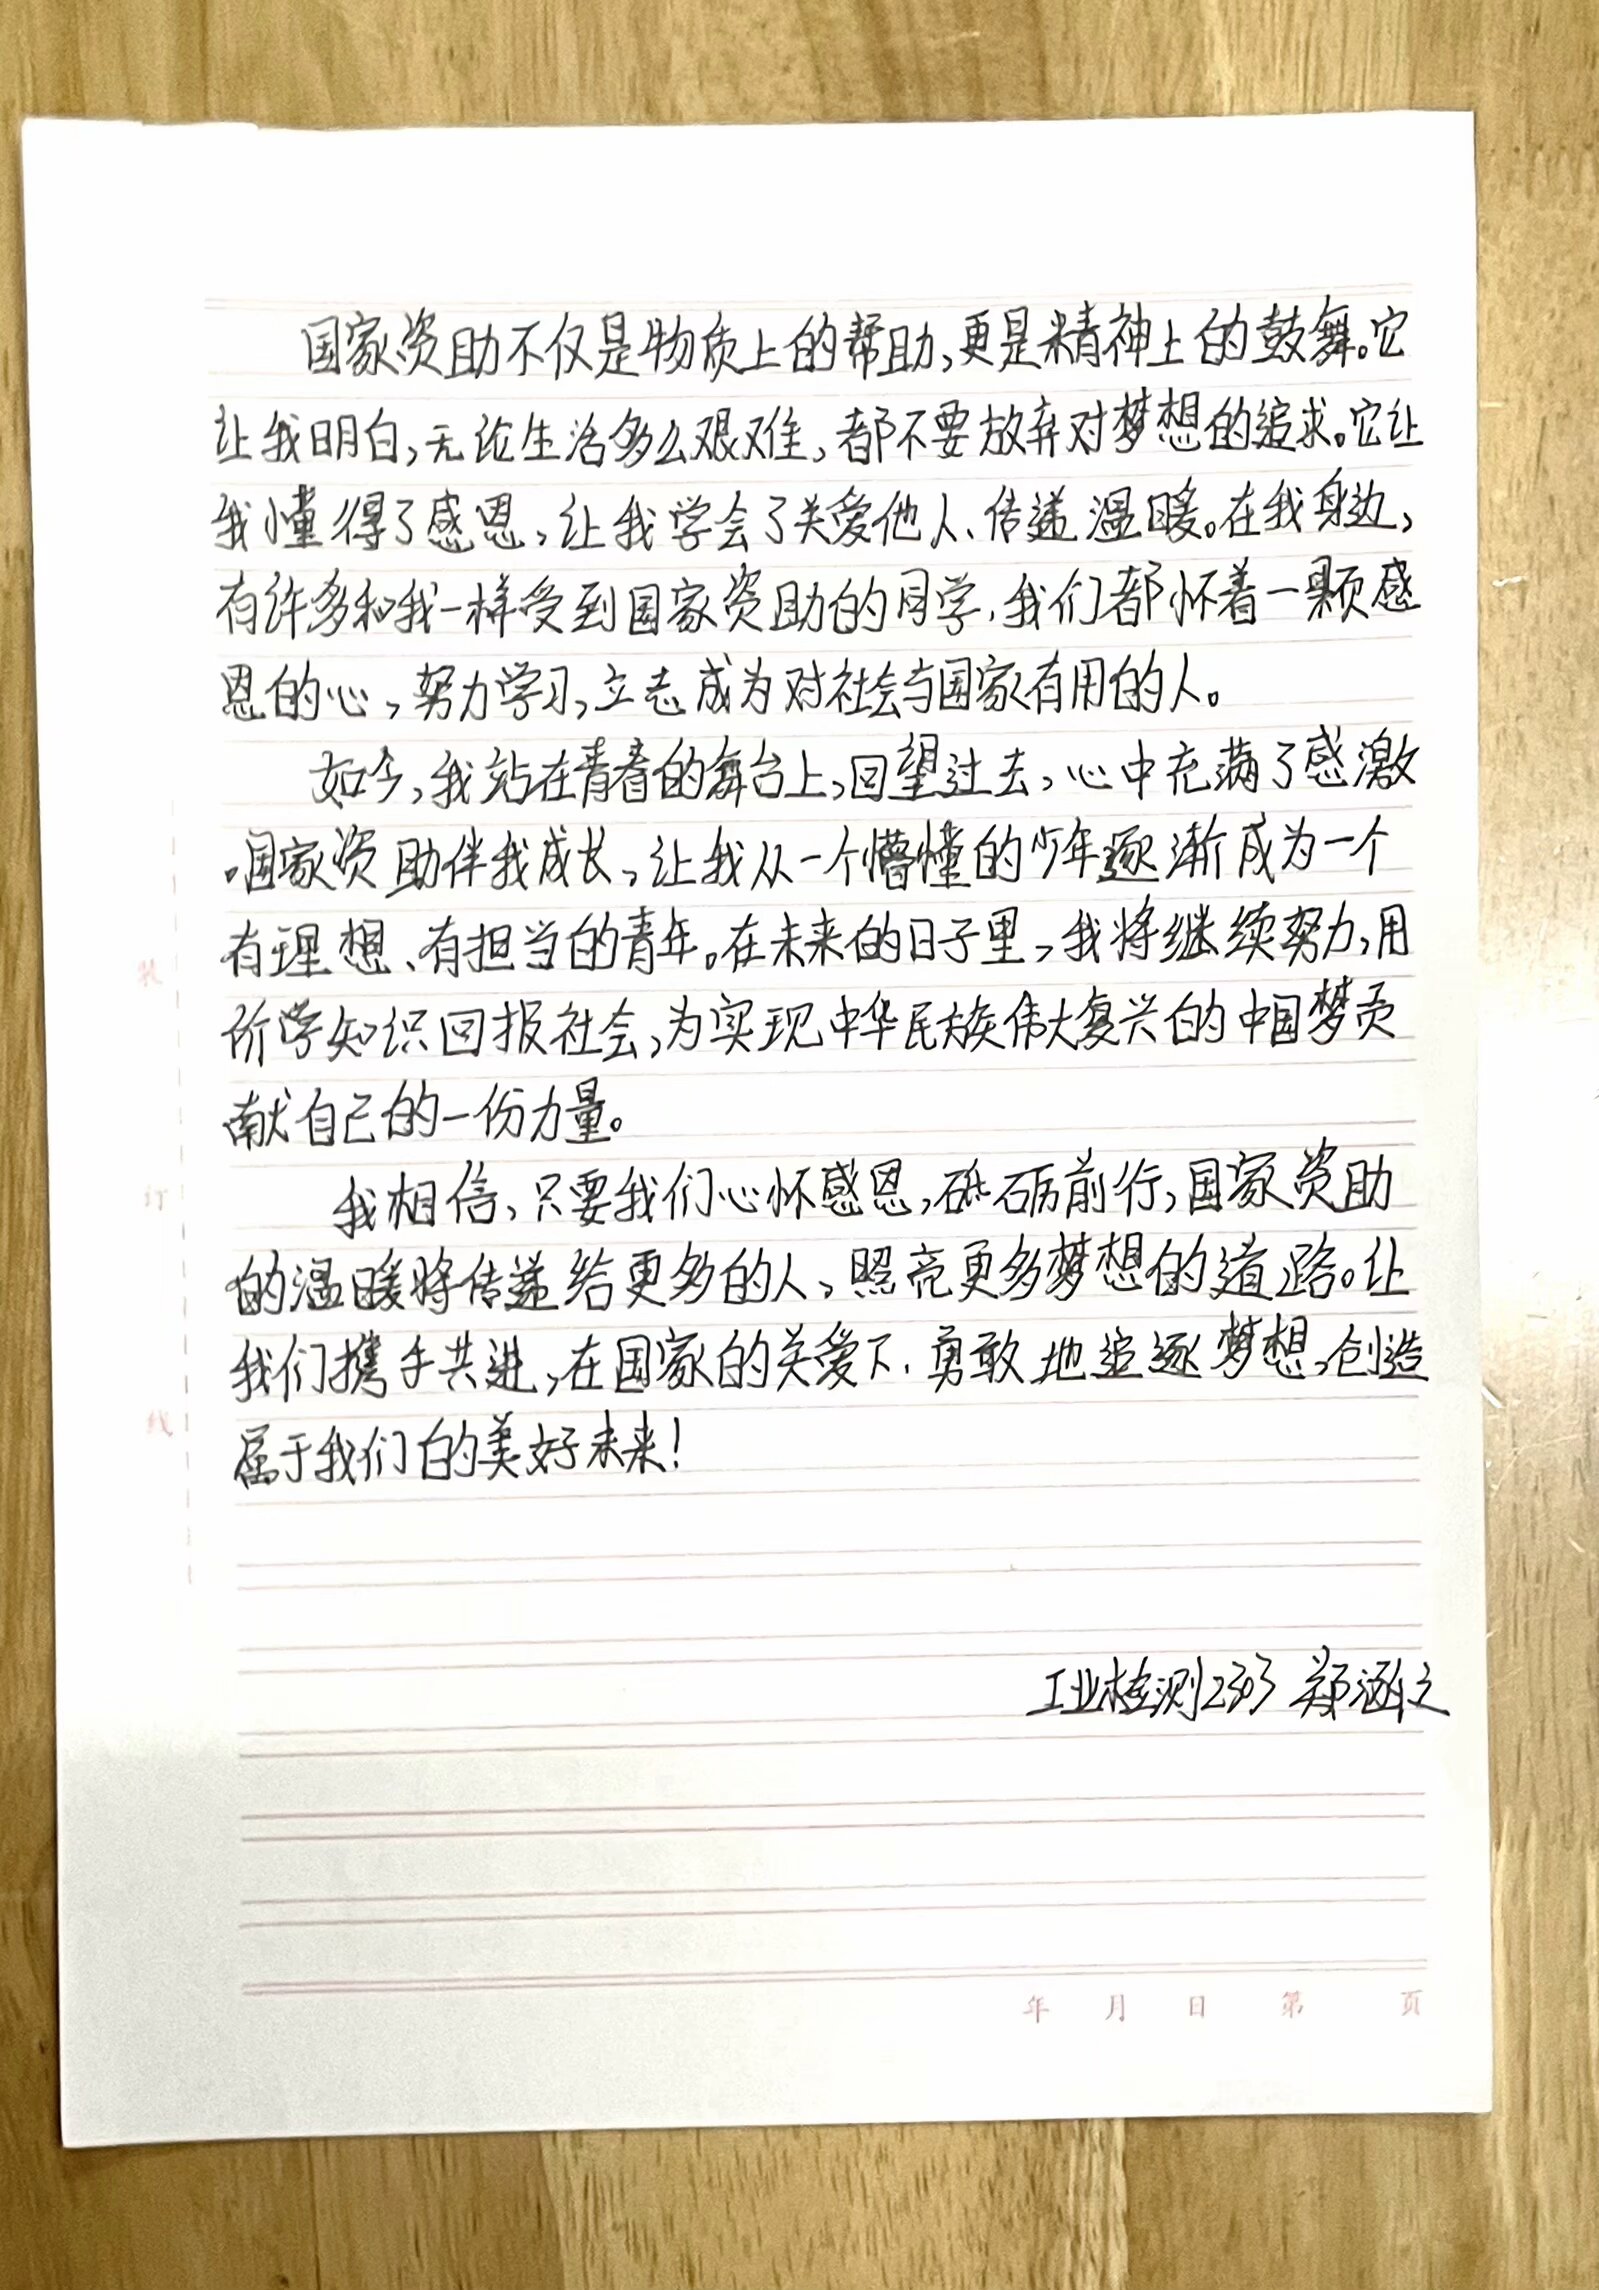 国家资助不仅是物质上的帮助,更是精神上的鼓舞。它
让我明白,无论生活多么艰难,都不要放弃对梦想的追求。它让
我懂得了感恩,让我学会了关爱他人、传递温暖。在我身边,
有许多和我一样受到国家资助的同学,我们都怀着一颗感
恩的心,努力学习,立志成为对社会与国家有用的人。
如今,我站在青春的舞台上,回望过去,心中充满了感激
。国家资助伴我成长,让我从一个懵懂的少年逐渐成为一个
有理想、有担当的青年。在未来的日子里,我将继续努力,用
所学知识回报社会,为实现中华民族伟大复兴的中国梦贡
献自己的一份力量。
我相信,只要我们心怀感恩,砥砺前行,国家资助
的温暖将传递给更多的人,照亮更多梦想的道路。让
我们携手共进,在国家的关爱下,勇敢地追逐梦想,创造
属于我们的美好未来!
工业检测2303 郑涵
装
订
线
年 月 日 第 页